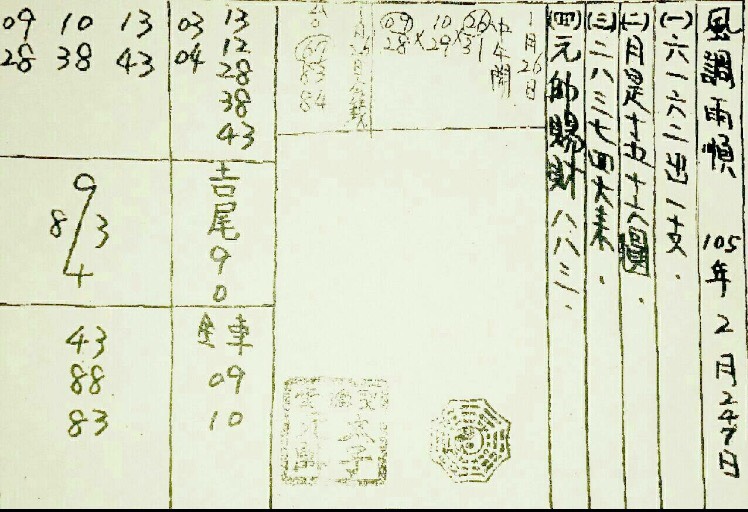 風調雨順 105年2月24 7日
(一)六一六二出一支.
(二)月是十五十六圓.
(三)二八三七四六來.
(四)元帥賜財八八三.
1月26日
中4開
09 × 10 × 26
28 29 31
83
84
03 13
04 12
28
38
43
吉尾90
金車
09
10
09 10 13
28 38 43
9
8 3
4
43
88
83
太子